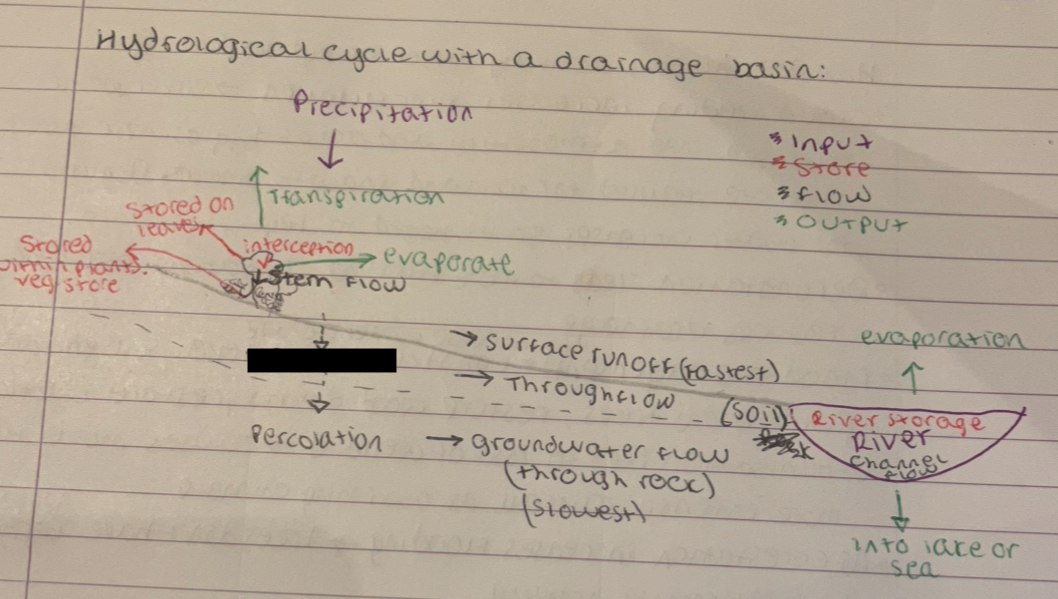 Hydrological cycle with a drainage basin:
Precipitation
* Input
* Store
* flow
* OUTPUT
Transpiration
Stored on
leaves
interception
evaporate
Stored
in plants.
veg store
Stem flow
→ surface runoff (fastest)
→ Throughflow
(soil)
evaporation
River storage
River
channel
flow
Percolation
→ groundwater flow
(through rock)
(slowest)
into lake or
sea